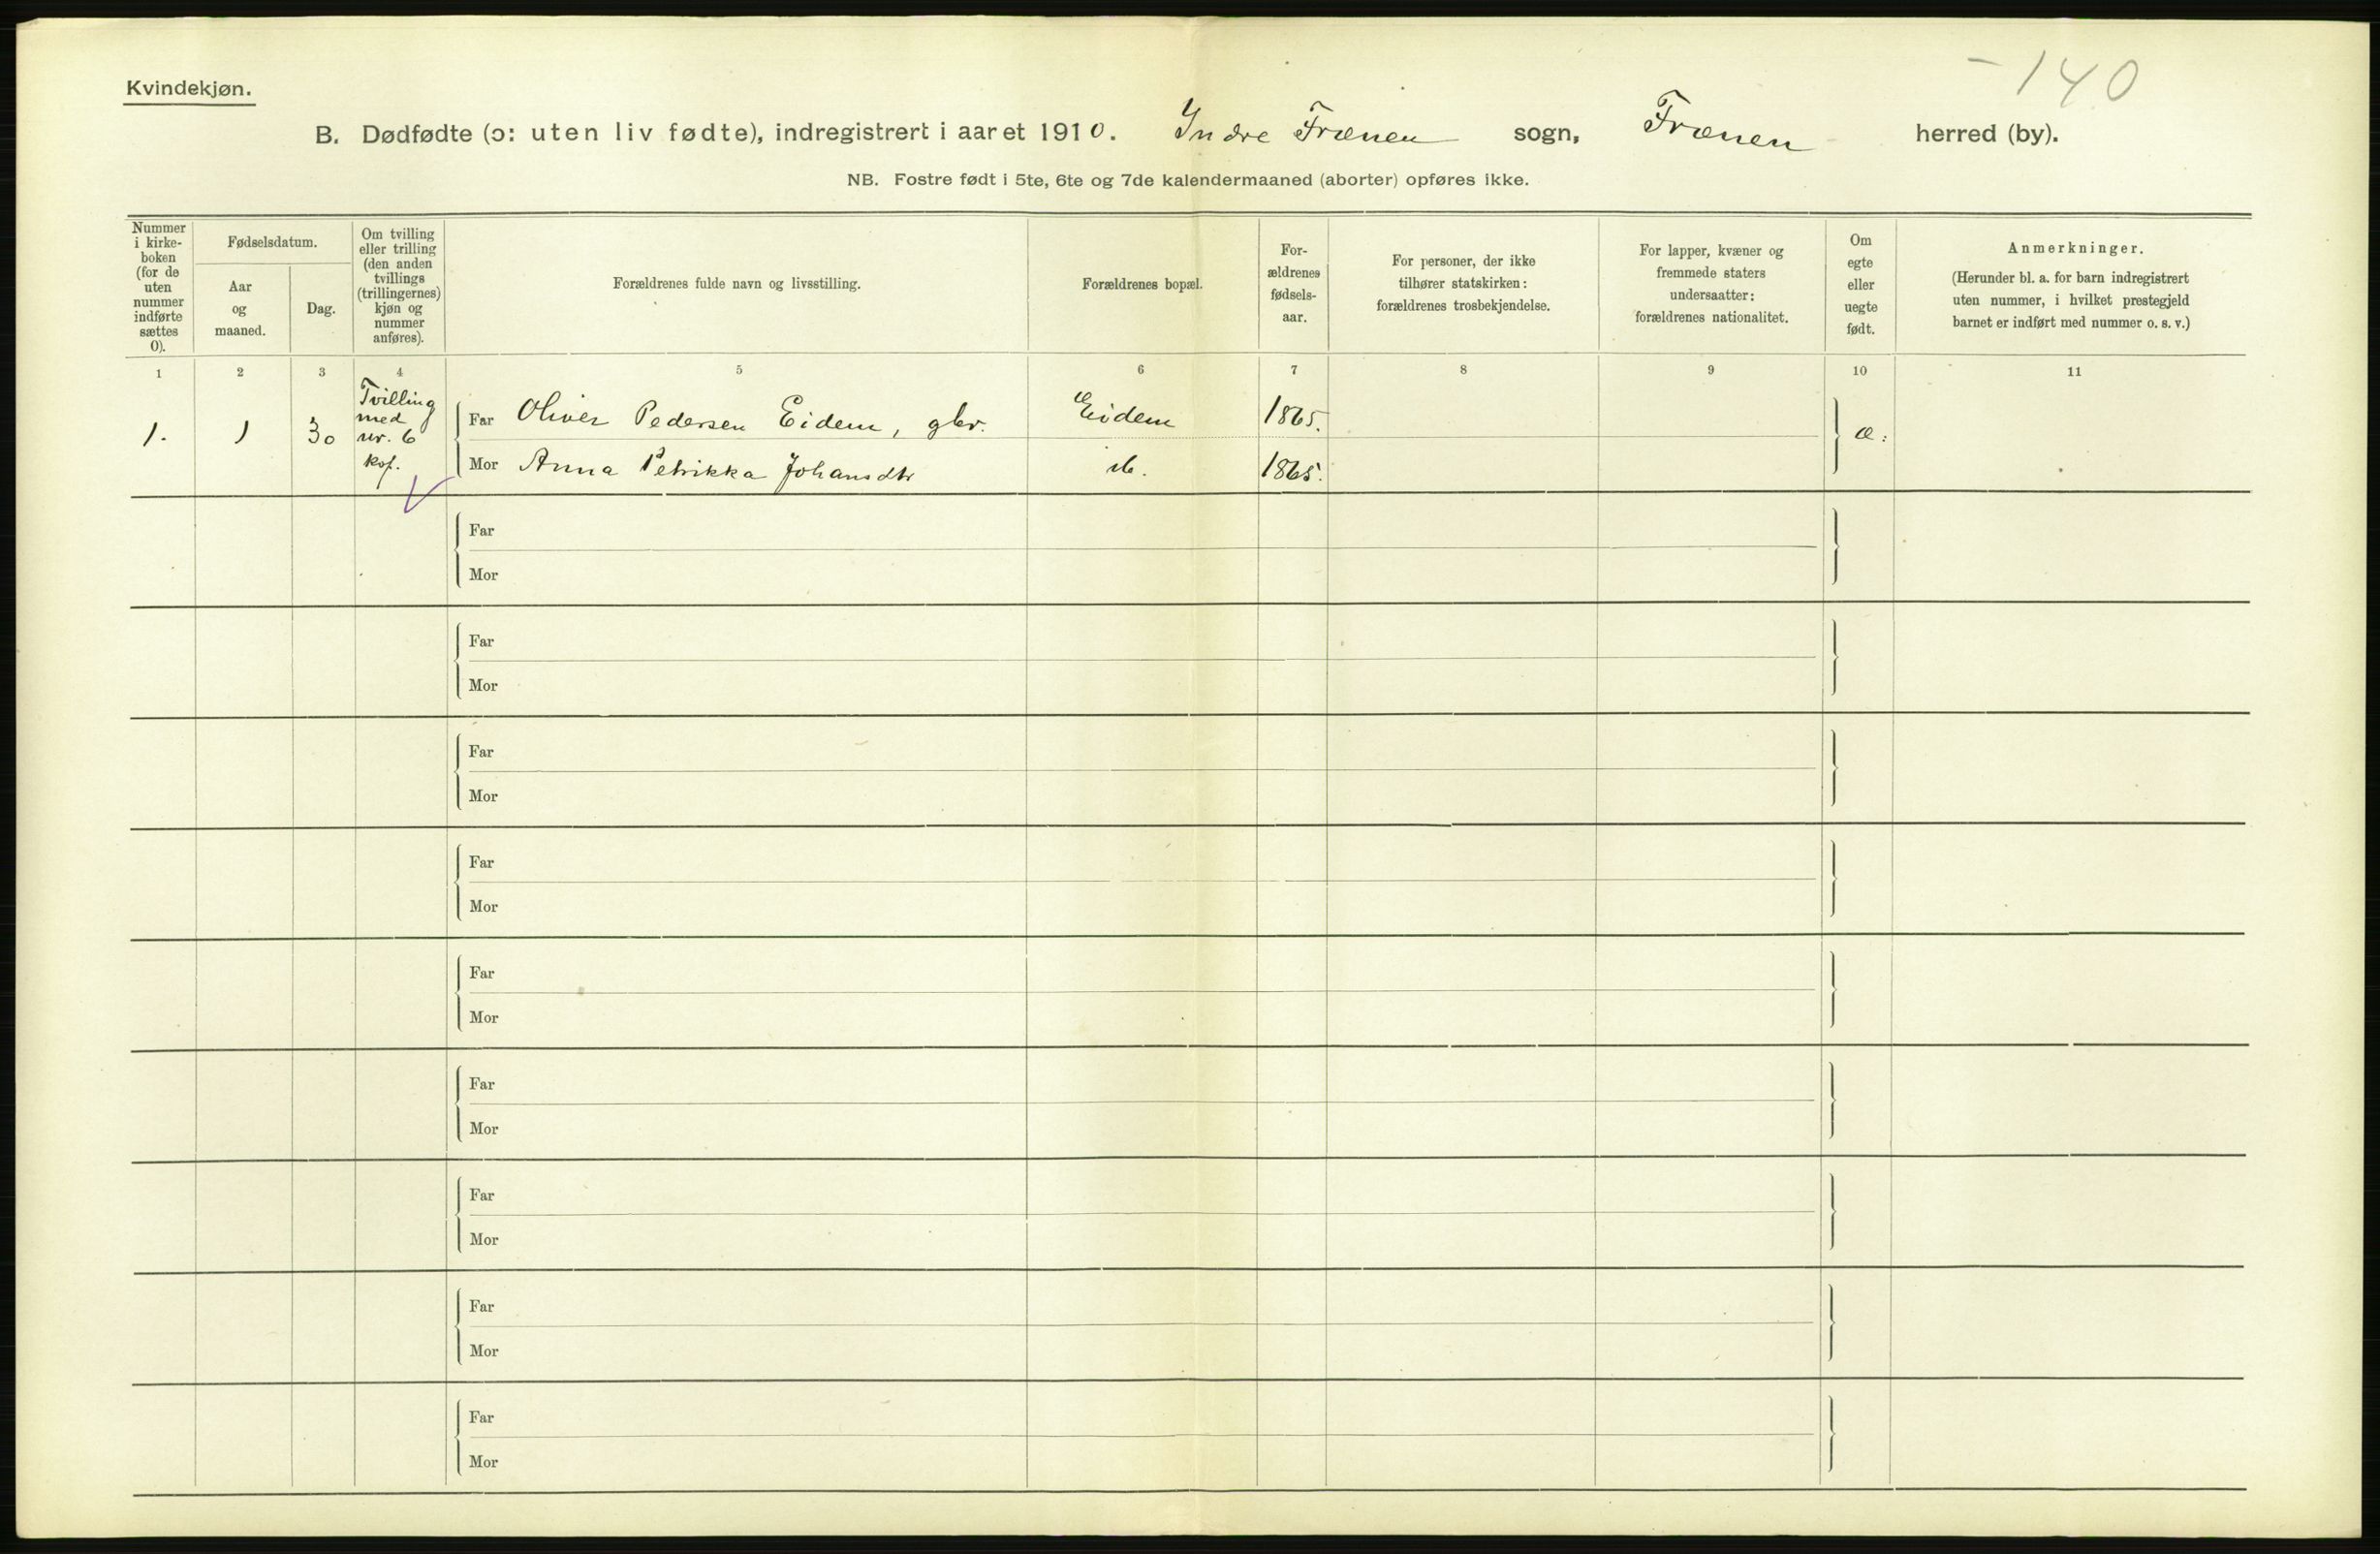 -140
Kvindekjøn.
B. Dødfødte (ɔ: uten liv fødte), indregistrert i aaret 1910. Indre Frænen sogn, Frænen herred (by).
NB. Fostre født i 5te, 6te og 7de kalendermaaned (aborter) opføres ikke.
Nummer
i kirke-
boken
(for de
uten
nummer
indførte
sættes
0).
Fødselsdatum.
Aar
og
maaned.
Dag.
Om tvilling
eller trilling
(den anden
tvillings
(trillingernes)
kjøn og
nummer
anføres).
Forældrenes fulde navn og livsstilling.
Forældrenes bopæl.
For-
ældrenes
fødsels-
aar.
For personer, der ikke
tilhører statskirken:
forældrenes trosbekjendelse.
For lapper, kvæner og
fremmede staters
undersaatter:
forældrenes nationalitet.
Om
egte
eller
uegte
født.
Anmerkninger.
(Herunder bl. a. for barn indregistrert
uten nummer, i hvilket prestegjeld
barnet er indført med nummer o. s. v.)
1 2 3 4 5 6 7 8 9 10 11
1. 1 30
Tvilling
med
nr. 6
Far Oliver Pedersen Eidem, gbr. Eidem 1865. æ:
Mor Anna Petrikka Johansdtr ib. 1865.
Far
Mor
Far
Mor
Far
Mor
Far
Mor
Far
Mor
Far
Mor
Far
Mor
Far
Mor
Far
Mor